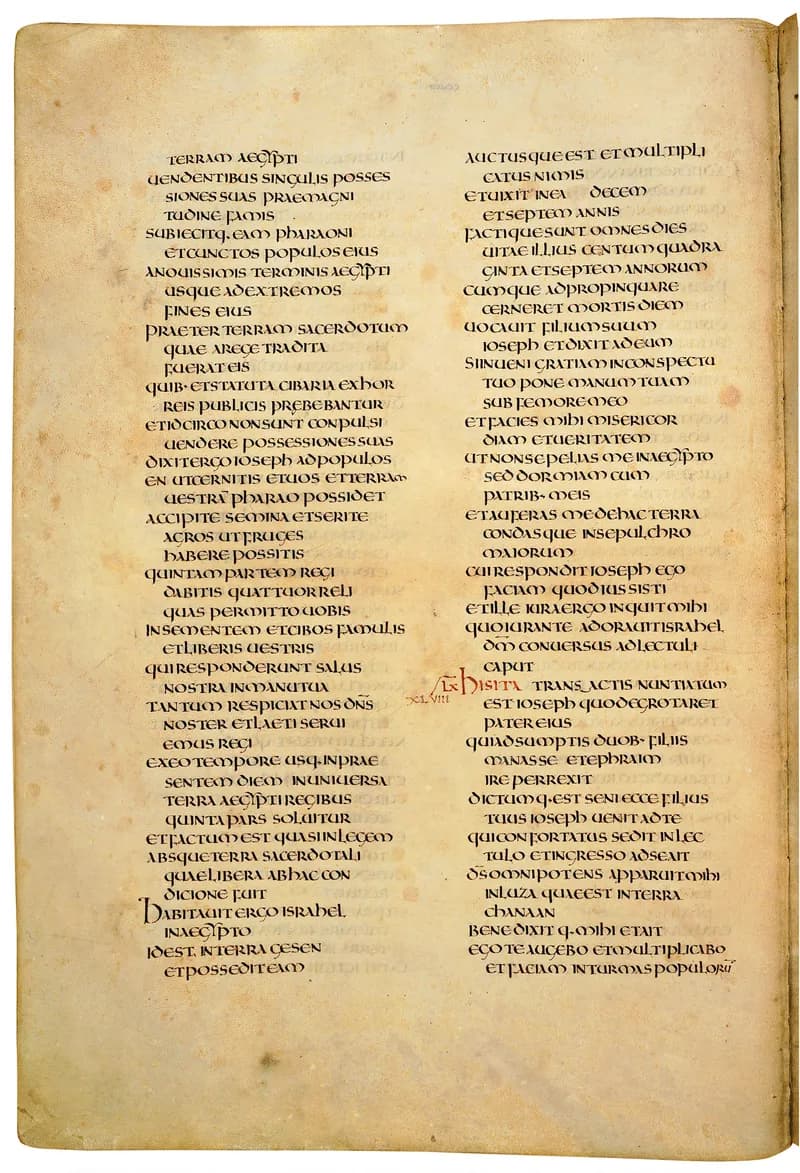 TERRAM AEGYPTI
UENDENTIBUS SINGULIS POSSES
SIONES SUAS PRAE MAGNI
TUDINE FAMIS
SUBIECITQ· EAM PHARAONI
ET CUNCTOS POPULOS EIUS
A NOUISSIMIS TERMINIS AEGYPTI
USQUE AD EXTREMOS
FINES EIUS
PRAETER TERRAM SACERDOTUM
QUAE A REGE TRADITA
FUERAT EIS
QUIB· ET STATUTA CIBARIA EX HOR
REIS PUBLICIS PREBEBANTUR
ET IDCIRCO NON SUNT CONPULSI
UENDERE POSSESSIONES SUAS
DIXIT ERGO IOSEPH AD POPULOS
EN UT CERNITIS ET UOS ET TERRAM
UESTRĀ PHARAO POSSIDET
ACCIPITE SEMINA ET SERITE
AGROS UT FRUGES
HABERE POSSITIS
QUINTAM PARTEM REGI
DABITIS QUATTUOR RELI
QUAS PERMITTO UOBIS
IN SEMENTEM ET CIBOS FAMULIS
ET LIBERIS UESTRIS
QUI RESPONDERUNT SALUS
NOSTRA IN MANU TUA
TANTUM RESPICIAT NOS DN̄S
NOSTER ET LAETI SERUI
EMUS REGI
EX EO TEMPORE USQ· IN PRAE
SENTEM DIEM IN UNIUERSA
TERRA AEGYPTI REGIBUS
QUINTA PARS SOLUITUR
ET FACTUM EST QUASI IN LEGEM
ABSQUE TERRA SACERDOTALI
QUAE LIBERA AB HAC CON
DICIONE FUIT
HABITAUIT ERGO ISRAHEL
IN AEGYPTO
ID EST, IN TERRA GESEN
ET POSSEDIT EAM
AUCTUSQUE EST ET MULTIPLI
CATUS NIMIS
ET UIXIT IN EA DECEM
ET SEPTEM ANNIS
FACTIQUE SUNT OMNES DIES
UITAE ILLIUS CENTUM QUADRA
GINTA ET SEPTEM ANNORUM
CUMQUE ADPROPINQUARE
CERNERET MORTIS DIEM
UOCAUIT FILIUM SUUM
IOSEPH ET DIXIT AD EUM
SI INUENI GRATIAM IN CONSPECTU
TUO PONE MANUM TUAM
SUB FEMORE MEO
ET FACIES MIHI MISERICOR
DIAM ET UERITATEM
UT NON SEPELIAS ME IN AEGYPTO
SED DORMIAM CUM
PATRIB· MEIS
ET AUFERAS ME DE HAC TERRA
CONDASQUE IN SEPULCHRO
MAIORUM
CUI RESPONDIT IOSEPH EGO
FACIAM QUOD IUSSISTI
ET ILLE IURA ERGO INQUIT MIHI
QUO IURANTE ADORAUIT ISRAHEL
DM̄ CONUERSUS AD LECTULI
CAPUT
LX HIS ITA TRANSACTIS NUNTIATUM
XLVIII EST IOSEPH QUOD EGROTARET
PATER EIUS
QUI ADSUMPTIS DUOB· FILIIS
MANASSE ET EPHRAIM
IRE PERREXIT
DICTUMQ· EST SENI ECCE FILIUS
TUUS IOSEPH UENIT AD TE
QUI CONFORTATUS SEDIT IN LEC
TULO ET INGRESSO AD SE AIT
DS̄ OMNIPOTENS APPARUIT MIHI
IN LUZA QUAE EST IN TERRA
CHANAAN
BENEDIXITQ· MIHI ET AIT
EGO TE AUGEBO ET MULTIPLICABO
ET FACIAM IN TURMAS POPULORŪ